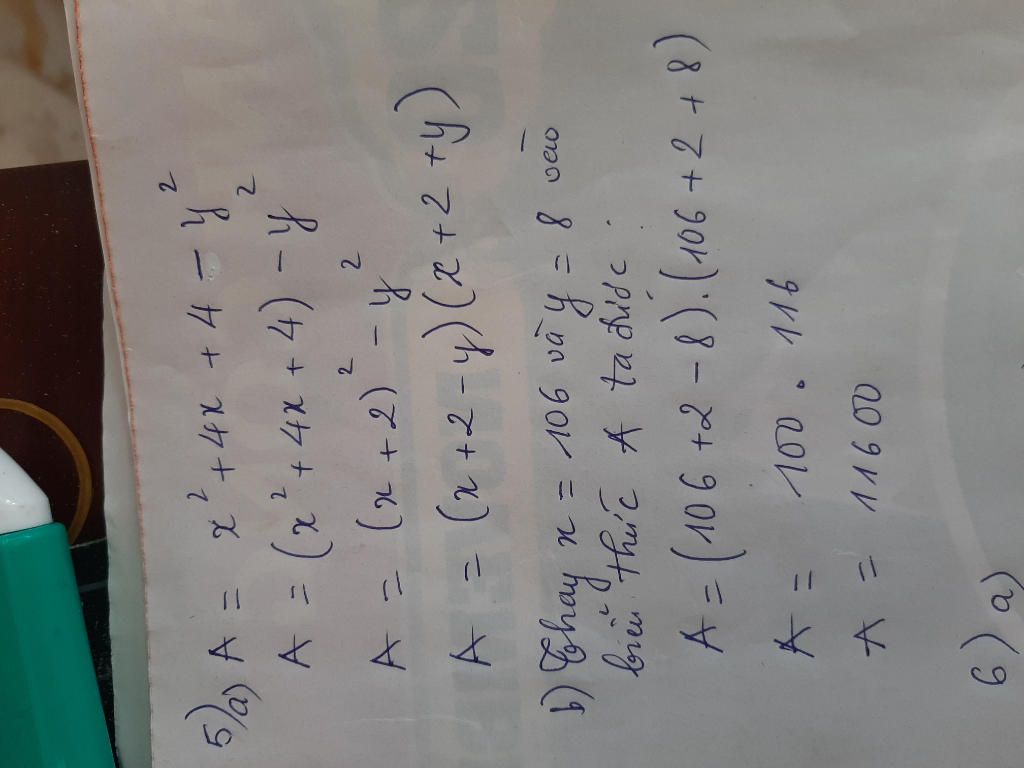 5) a) A = x² + 4x + 4 - y²
A = (x² + 4x + 4) - y²
A = (x + 2)² - y²
A = (x + 2 - y)(x + 2 + y)
b) Thay x = 106 và y = 8 vào
biểu thức A ta được:
A = (106 + 2 - 8).(106 + 2 + 8)
A = 100 . 116
A = 11600
6) a)